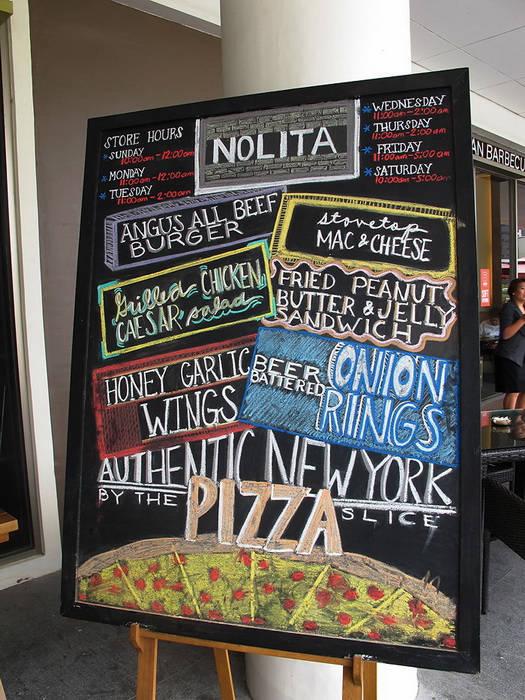 STORE HOURS
SUNDAY
10:00am - 12:00am
MONDAY
11:00am - 12:00am
TUESDAY
11:00am - 2:00am
NOLITA
WEDNESDAY
11:00am - 2:00am
THURSDAY
11:00am - 2:00am
FRIDAY
11:00am - 5:00am
SATURDAY
10:00am - 5:00am
ANGUS ALL BEEF
BURGER
stovetop
MAC & CHEESE
Grilled CHICKEN
CAESAR salad
FRIED PEANUT
BUTTER & JELLY
SANDWICH
HONEY GARLIC
WINGS
BEER
BATTERED
ONION
RINGS
AUTHENTIC NEW YORK
BY THE
PIZZA
SLICE
AN BARBECU